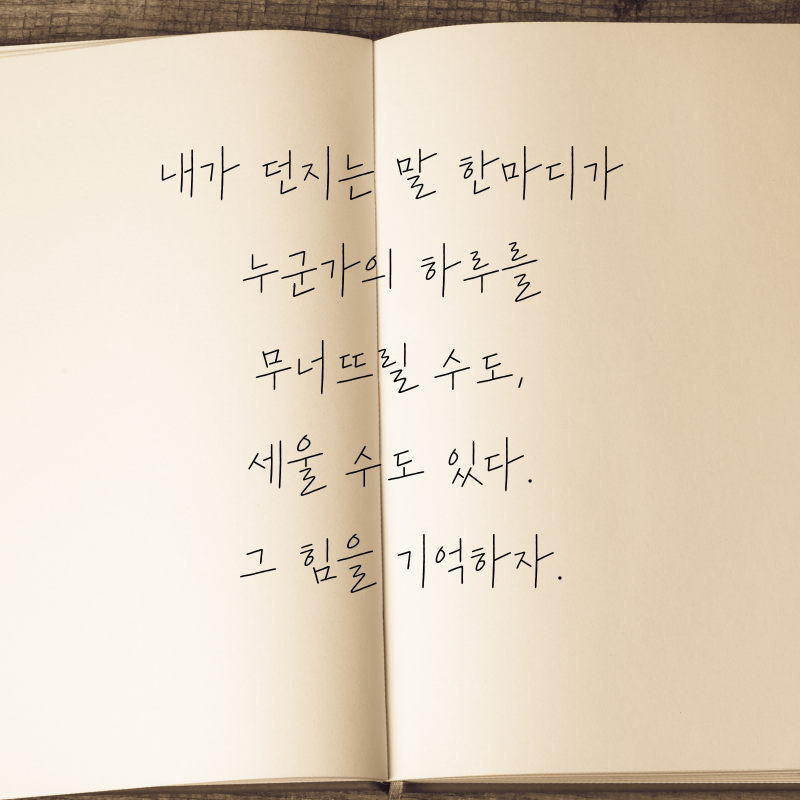 내가 던지는 말 한마디가
누군가의 하루를
무너뜨릴 수도,
세울 수도 있다.
그 힘을 기억하자.